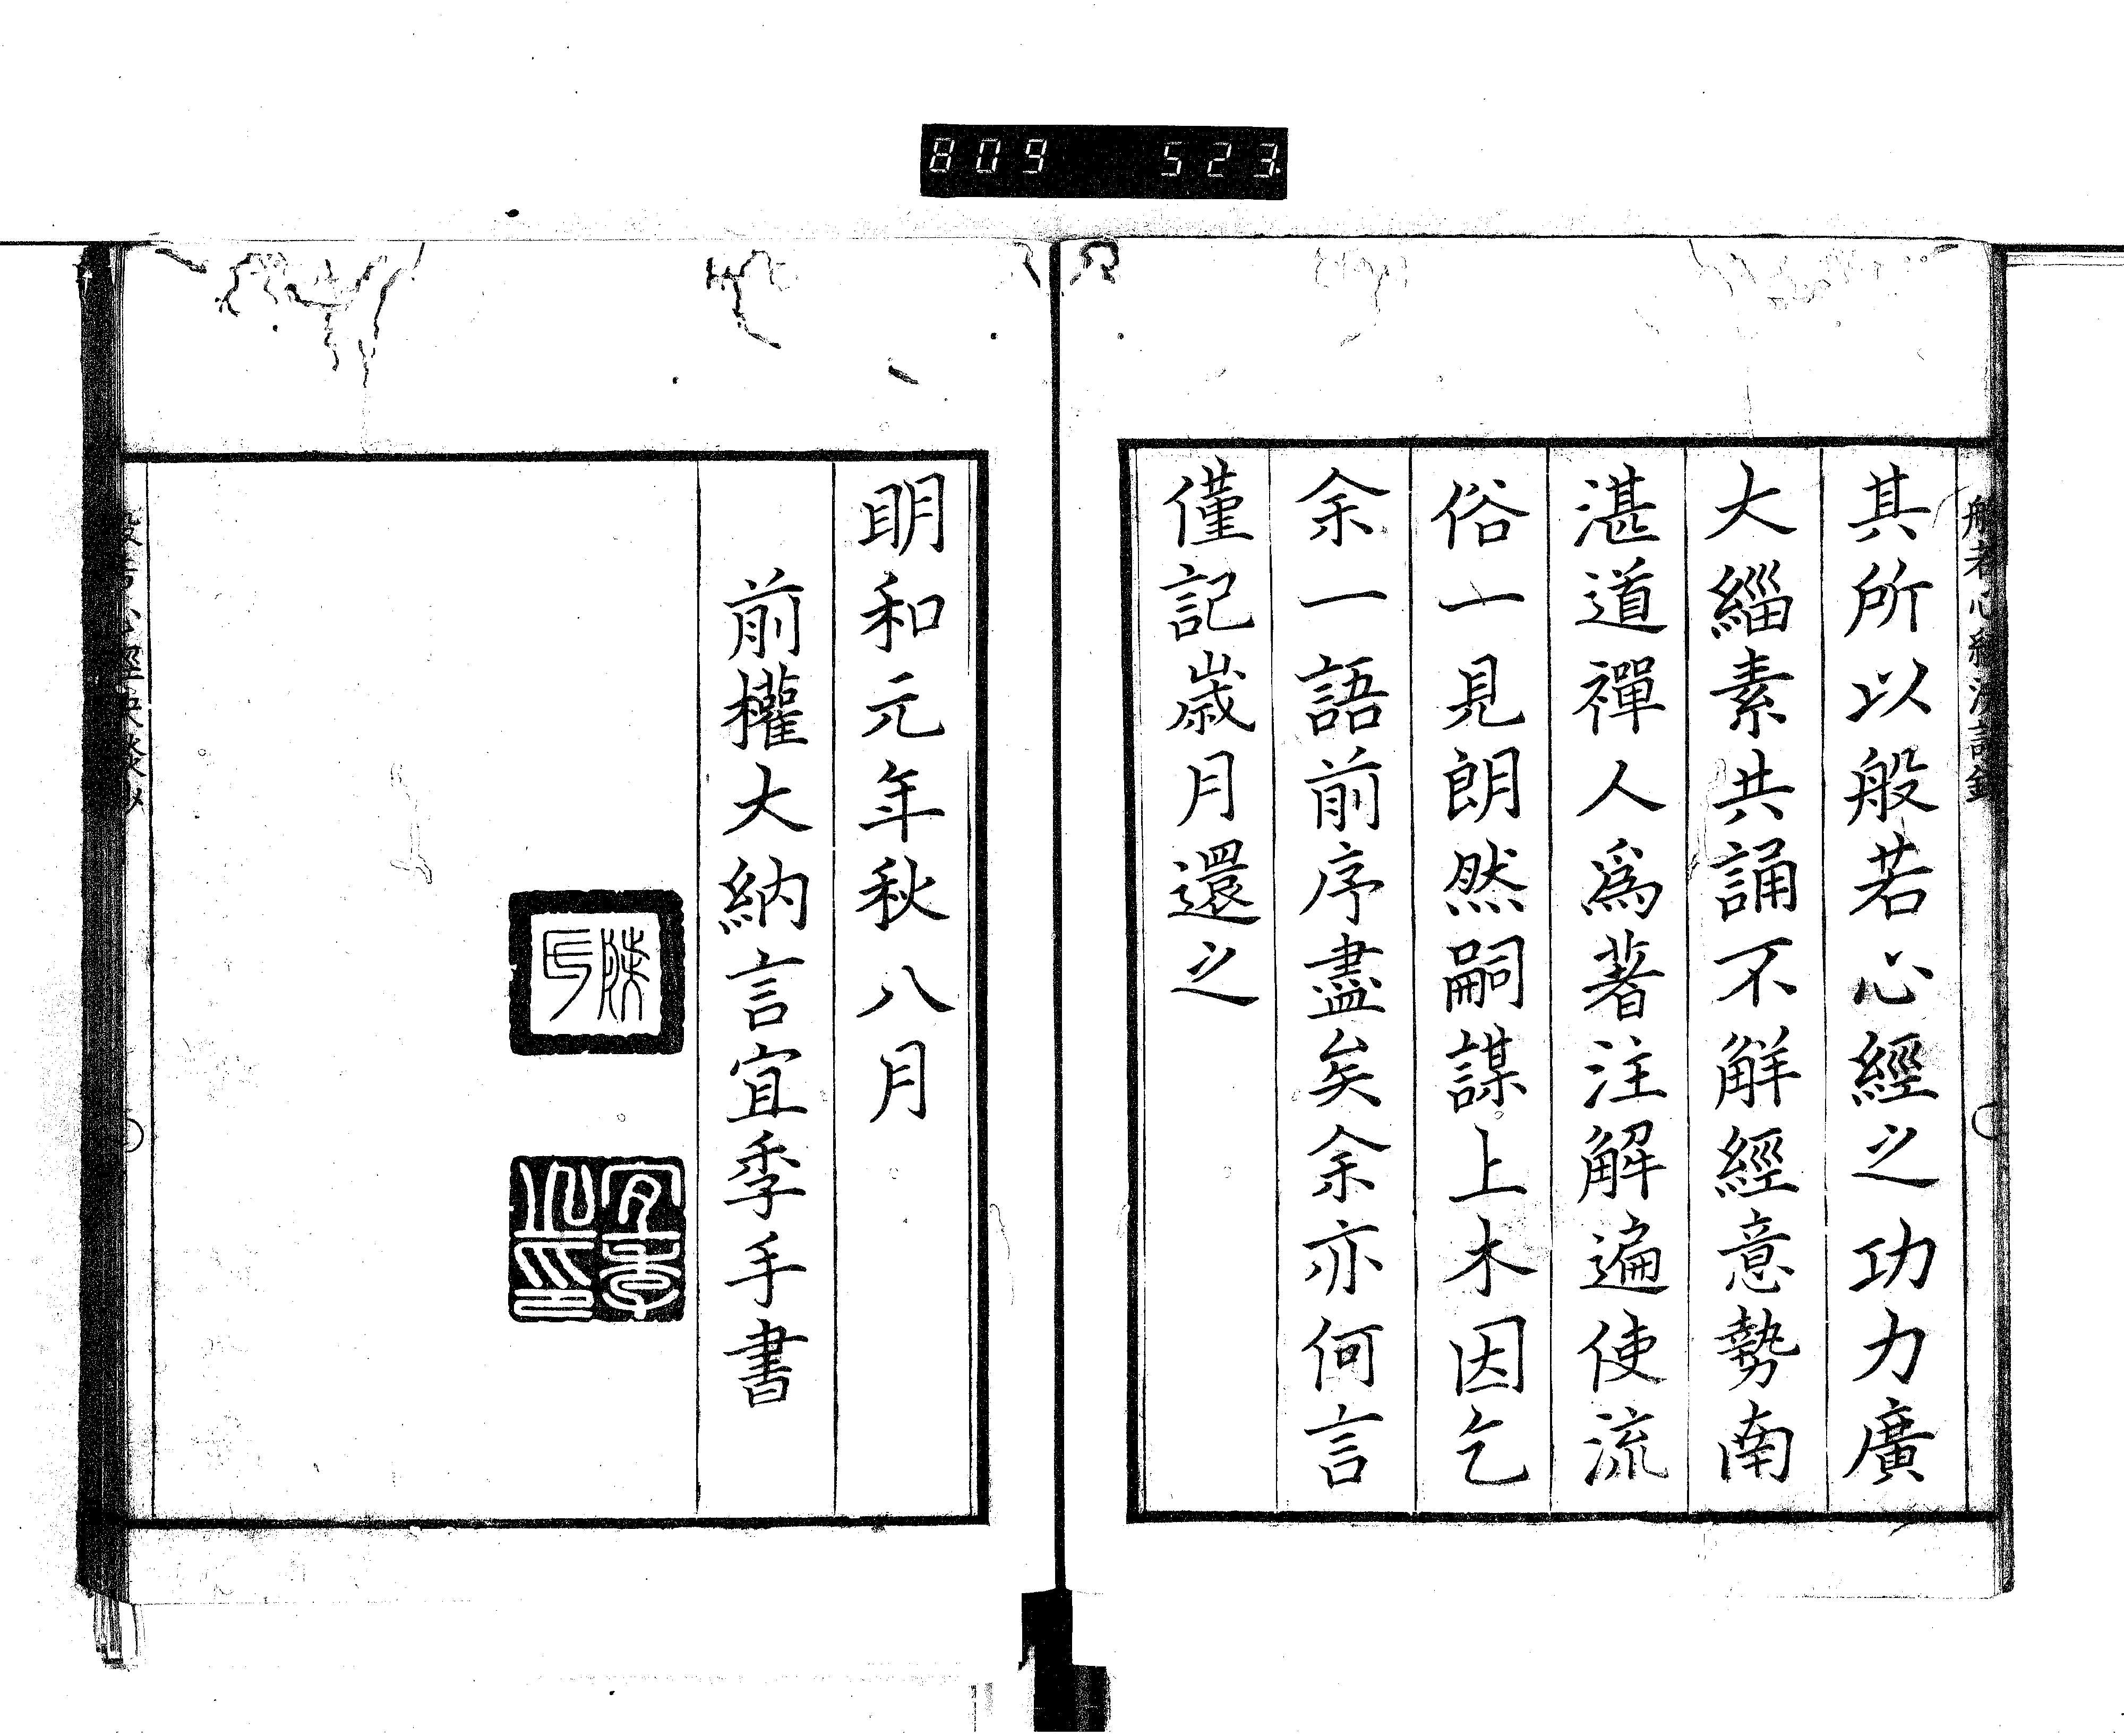 809 523
其所以般若心經之功力廣
大緇素共誦不觧經意勢南
湛道禪人爲著注解遍使流
俗一見朗然嗣謀上木因乞
余一語前序盡矣余亦何言
僅記歳月還之
明和元年秋八月
前權大納言宜季手書
宜季之印